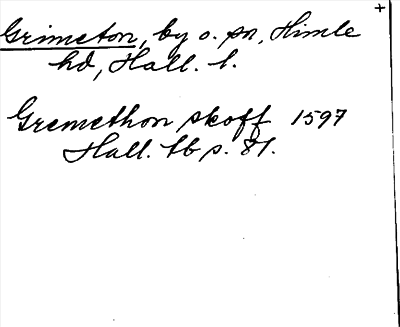 +
Grimeton, by o. sn, Himle
hd, Hall. l.
Gremethon skoff 1597
Hall. tb p. 81.